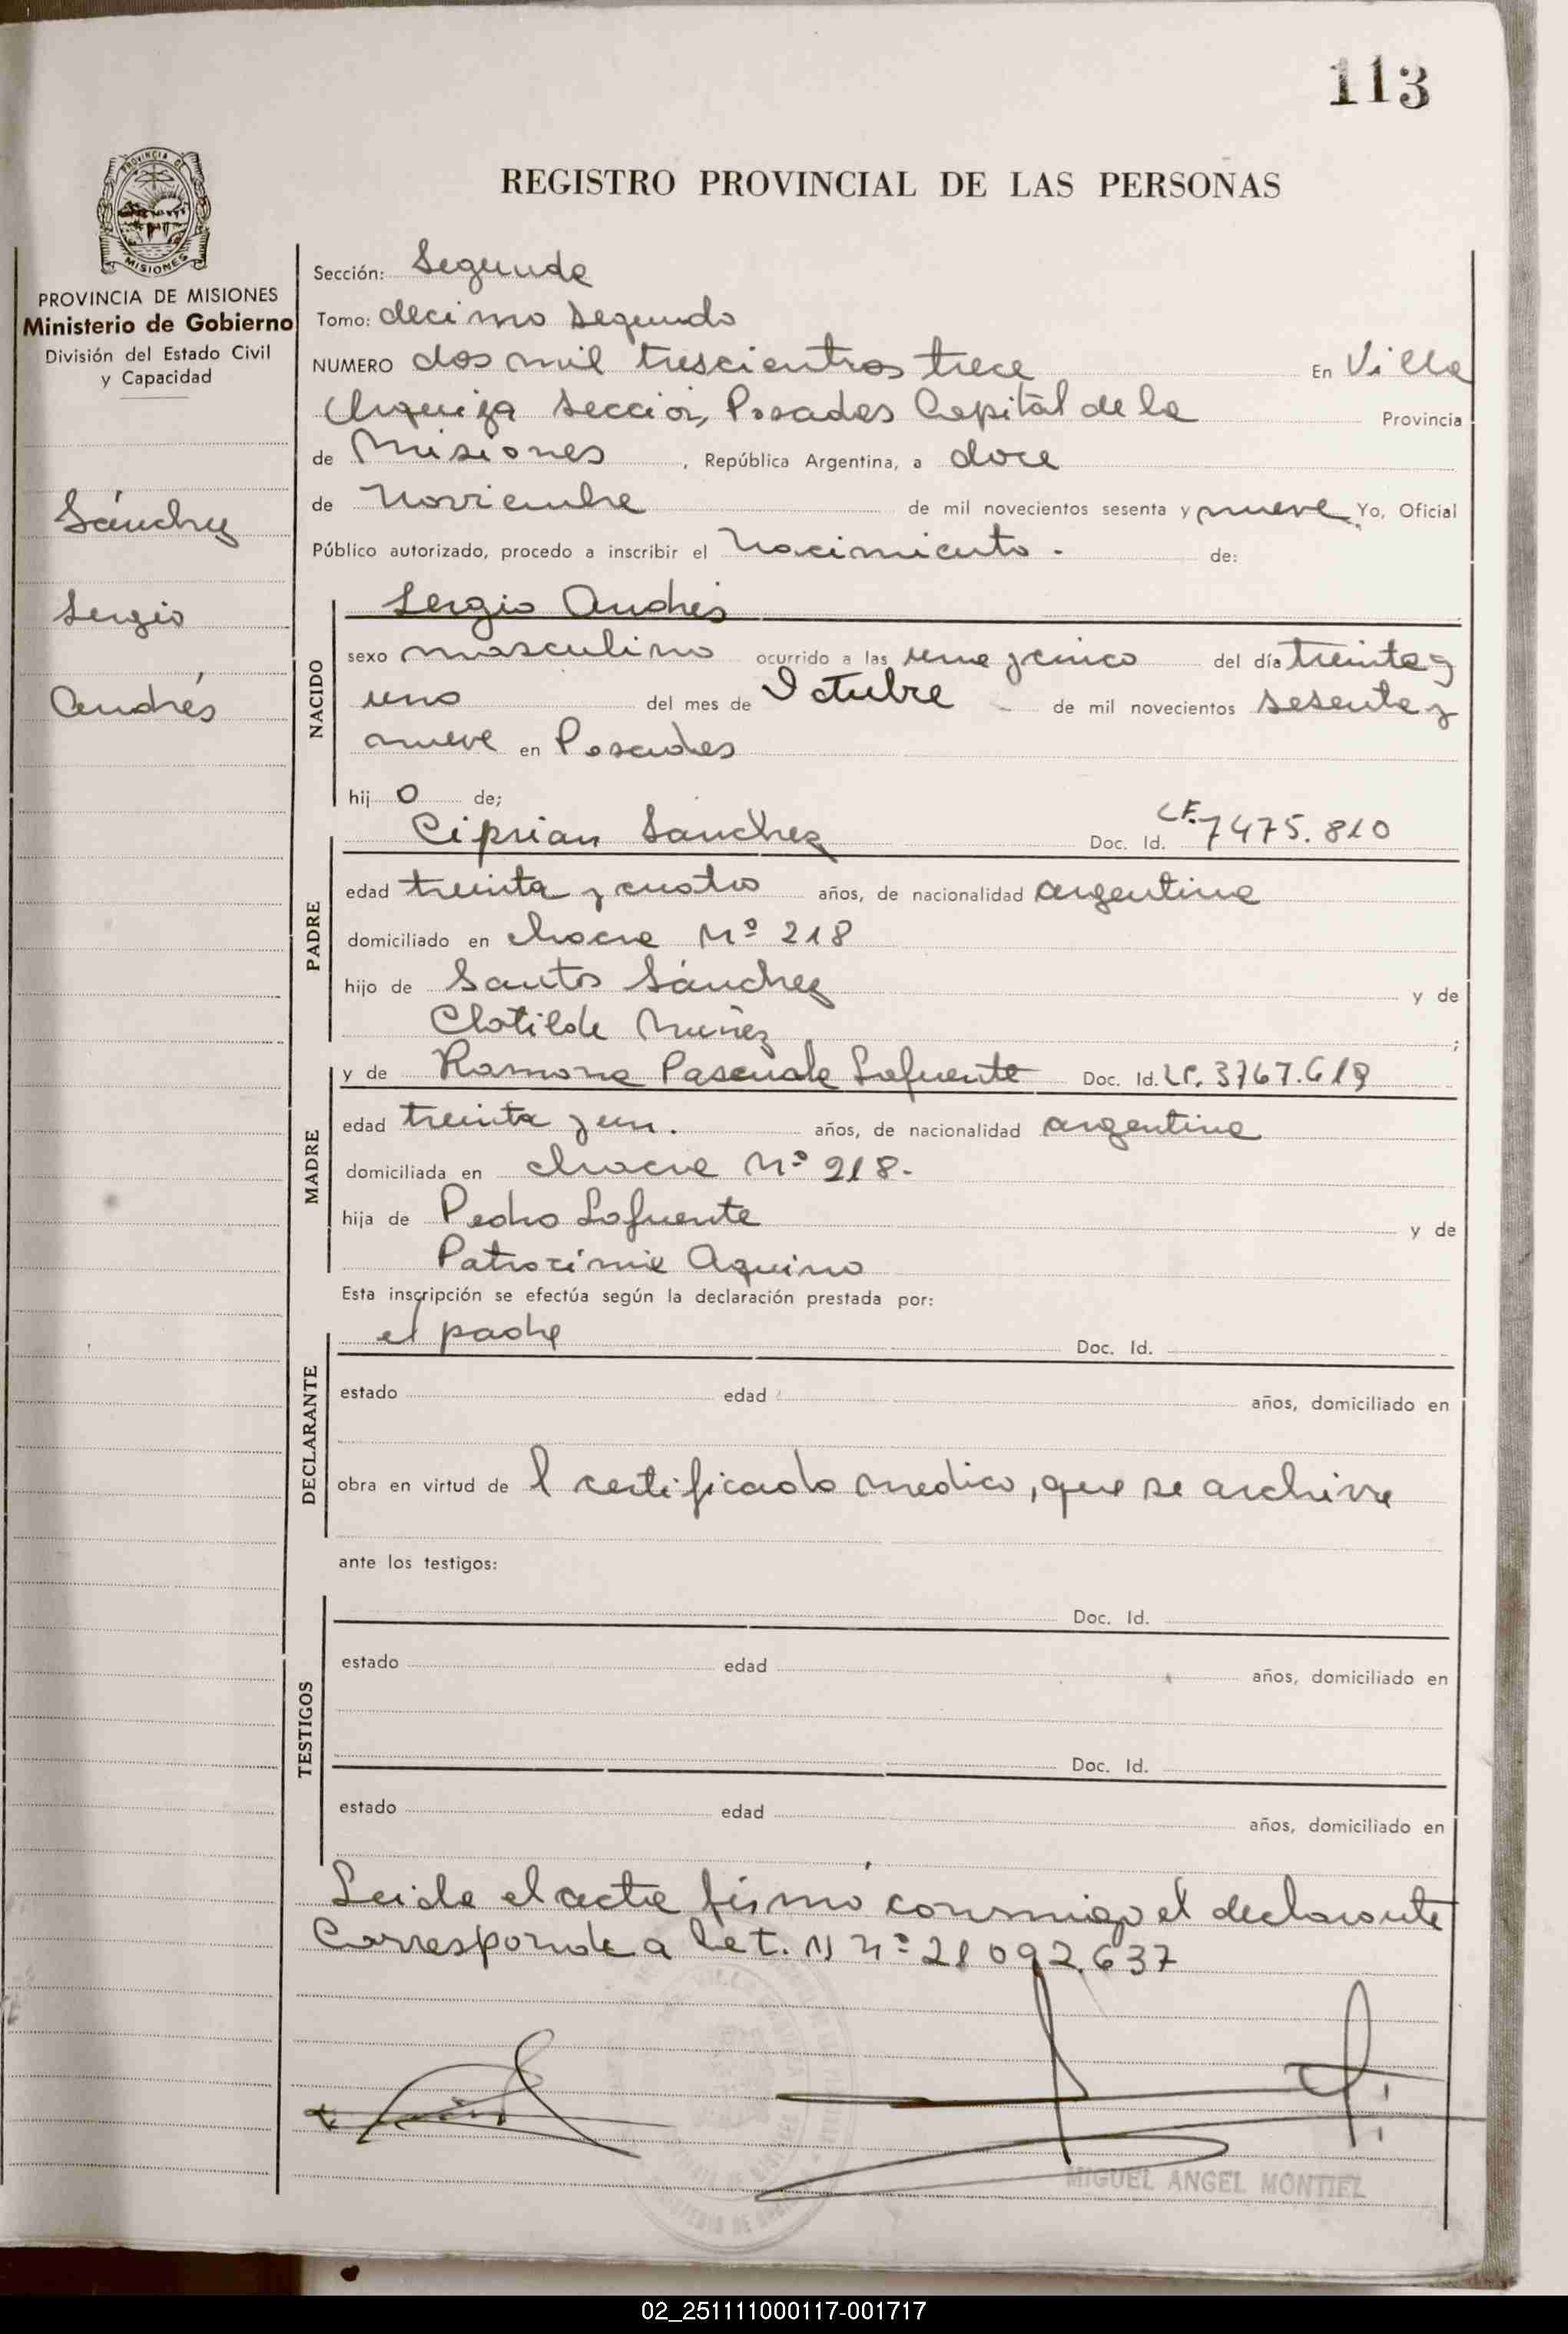 113
REGISTRO PROVINCIAL DE LAS PERSONAS
PROVINCIA DE MISIONES
Ministerio de Gobierno
División del Estado Civil
y Capacidad
Sánchez
Sergio
Andrés
Sección: Segunda
Tomo: decimo segundo
NUMERO dos mil trescientros trece En Villa
Urquiza Seccion, Posadas Capital de la Provincia
de Misiones, República Argentina, a doce
de Noviembre de mil novecientos sesenta y nueve Yo, Oficial
Público autorizado, procedo a inscribir el Nacimiento. de:
NACIDO
Sergio Andrés
sexo masculino ocurrido a las una y cinco del día treinta y
uno del mes de Octubre de mil novecientos sesenta y
nueve en Posadas
hij o de;
PADRE
Ciprian Sanchez Doc. Id. 7475.810
edad treinta y cuatro años, de nacionalidad argentina
domiciliado en chacra Nº 218
hijo de Santos Sánchez y de
Clotilde Nuñez ;
MADRE
y de Ramona Pascuala Lafuente Doc. Id. LC. 3767.619
edad treinta y un. años, de nacionalidad argentina
domiciliada en chacra Nº 218.
hija de Pedro Lafuente y de
Patrocinia Aquino
Esta inscripción se efectúa según la declaración prestada por:
DECLARANTE
el padre Doc. Id.
estado edad años, domiciliado en
obra en virtud de l certificado medico, que se archiva
ante los testigos:
TESTIGOS
Doc. Id.
estado edad años, domiciliado en
Doc. Id.
estado edad años, domiciliado en
Leida el acta firmó conmigo el declarante
Corresponde a Let. N nº 21 092.637
MIGUEL ANGEL MONTIEL
02_251111000117-001717